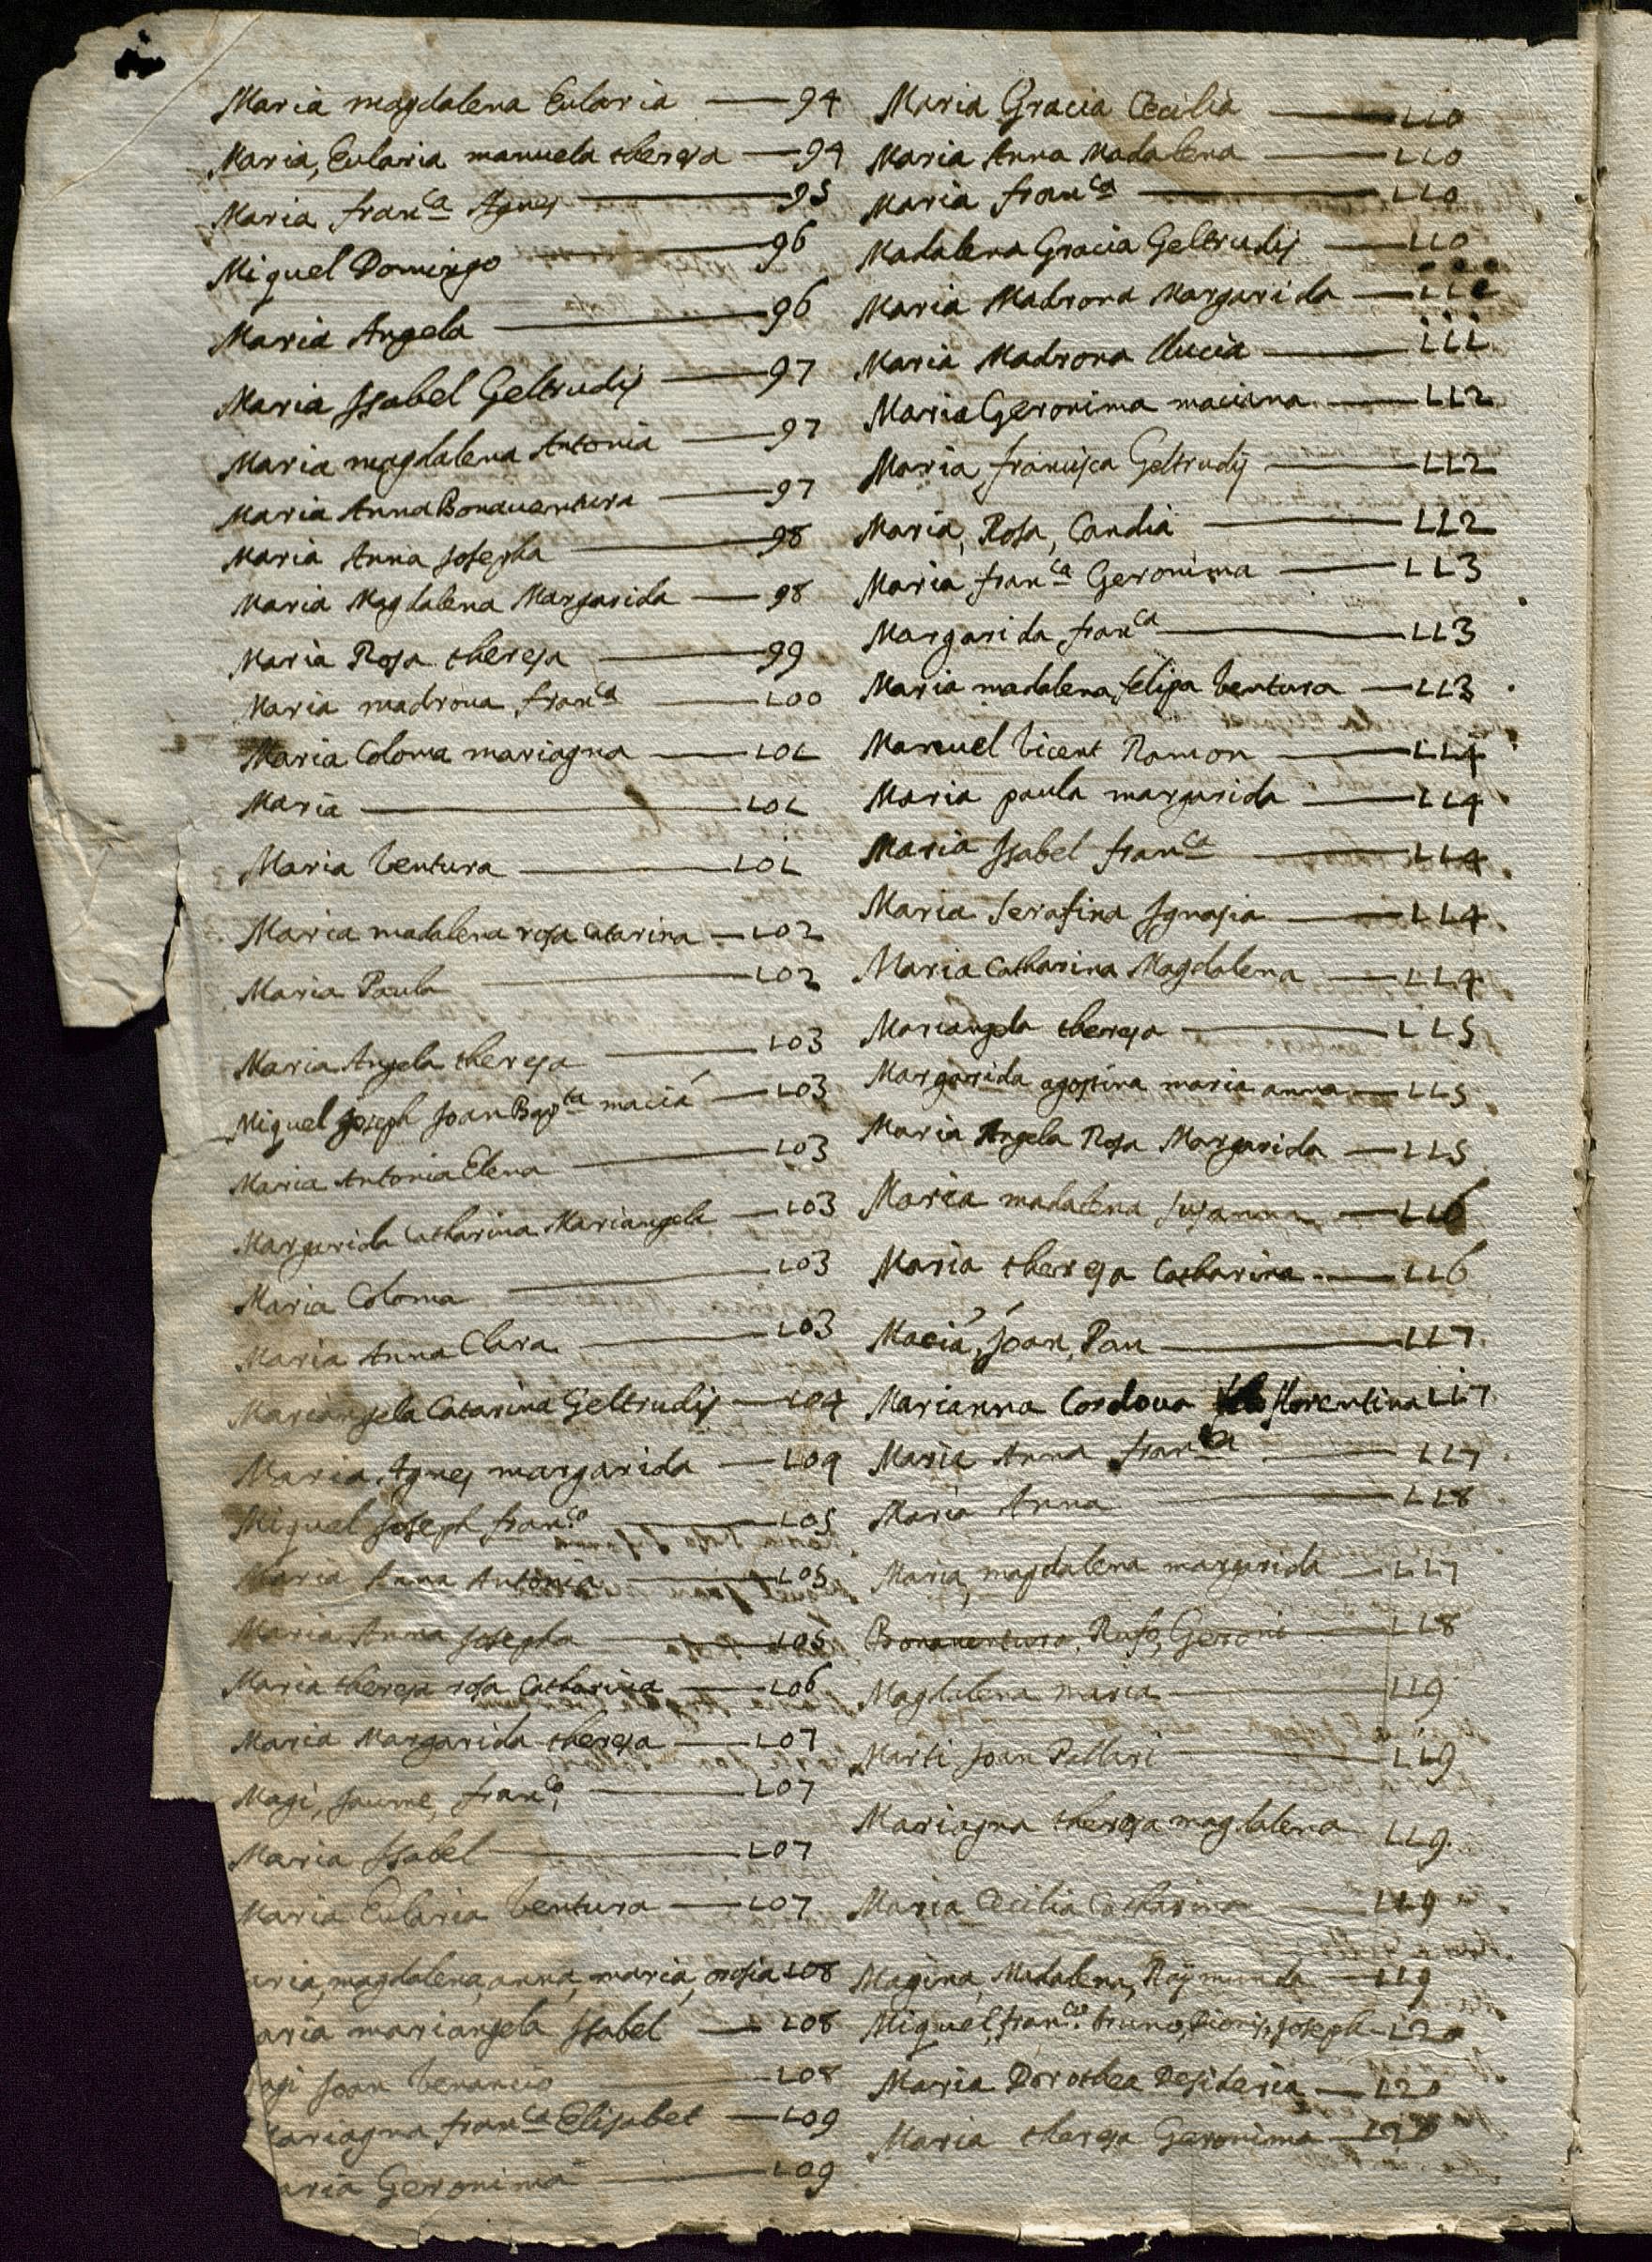 Maria magdalena Eularia — 94
Maria, Eularia manuela theresa — 94
Maria fran.ca Agnes — 95
Miquel Domingo — 96
Maria Angela — 96
Maria Isabel Geltrudis — 97
Maria magdalena Antonia — 97
Maria Anna Bonaventura — 97
Maria Anna Josepha — 98
Maria Magdalena Margarida — 98
Maria Rosa theresa — 99
Maria madrona fran.ca — 100
Maria Coloma mariagna — 101
Maria — 101
Maria Ventura — 101
Maria madalena rosa Catarina — 102
Maria Paula — 102
Maria Angela theresa — 103
Miquel Joseph Joan Bap.ta maciá — 103
Maria Antonia Elena — 103
Margarida Catharina Mariangela — 103
Maria Coloma — 103
Maria Anna Clara — 103
Mariangela Catarina Geltrudis — 104
Maria Agnes margarida — 104
Miquel Joseph fran.co — 105
Maria Anna Antonia — 105
Maria Anna Josepha — 105
Maria theresa rosa Catharina — 106
Maria Margarida theresa — 107
Magi, Jaume, fran.co — 107
Maria Isabel — 107
Maria Eularia Ventura — 107
aria, magdalena, anna, maria, orosia 108
aria mariangela Isabel — 108
agi Joan Venancio — 108
ariagna fran.ca Elisabet — 109
aria Geronima — 109
Maria Gracia Cecilia — 110
Maria Anna Madalena — 110
Maria fran.ca — 110
Madalena Gracia Geltrudis — 110
Maria Madrona Margarida — 111
Maria Madrona llucia — 111
Maria Geronima maciana — 112
Maria francisca Geltrudis — 112
Maria, Rosa, Candia — 112
Maria fran.ca Geronima — 113
Margarida fran.ca — 113
Maria madalena felipa Ventura — 113
Manuel Vicent Ramon — 114
Maria paula margarida — 114
Maria Isabel fran.ca — 114
Maria Serafina Ignasia — 114
Maria Catharina Magdalena — 114
Mariangela theresa — 115
Margarida agostina maria anna — 115
Maria Angela Rosa Margarida — 115
Maria madalena Susanna — 116
Maria theresa Catharina — 116
Maciá, Joan, Pau — 117
Marianna Cordova florentina 117
Maria Anna fran.ca — 117
Maria Anna — 118
Maria, magdalena margarida — 117
Bonaventura, Rufo, Geroni — 118
Magdalena maria — 119
Marti Joan Pallari — 119
Mariagna theresa magdalena 119
Maria Cecilia Catharina — 119
Magina, Madalena, Raÿmunda — 119
Miquel, fran.co bruno, Dionis, Joseph — 120
Maria Dorothea Desideria — 120
Maria theresa Geronima — 120